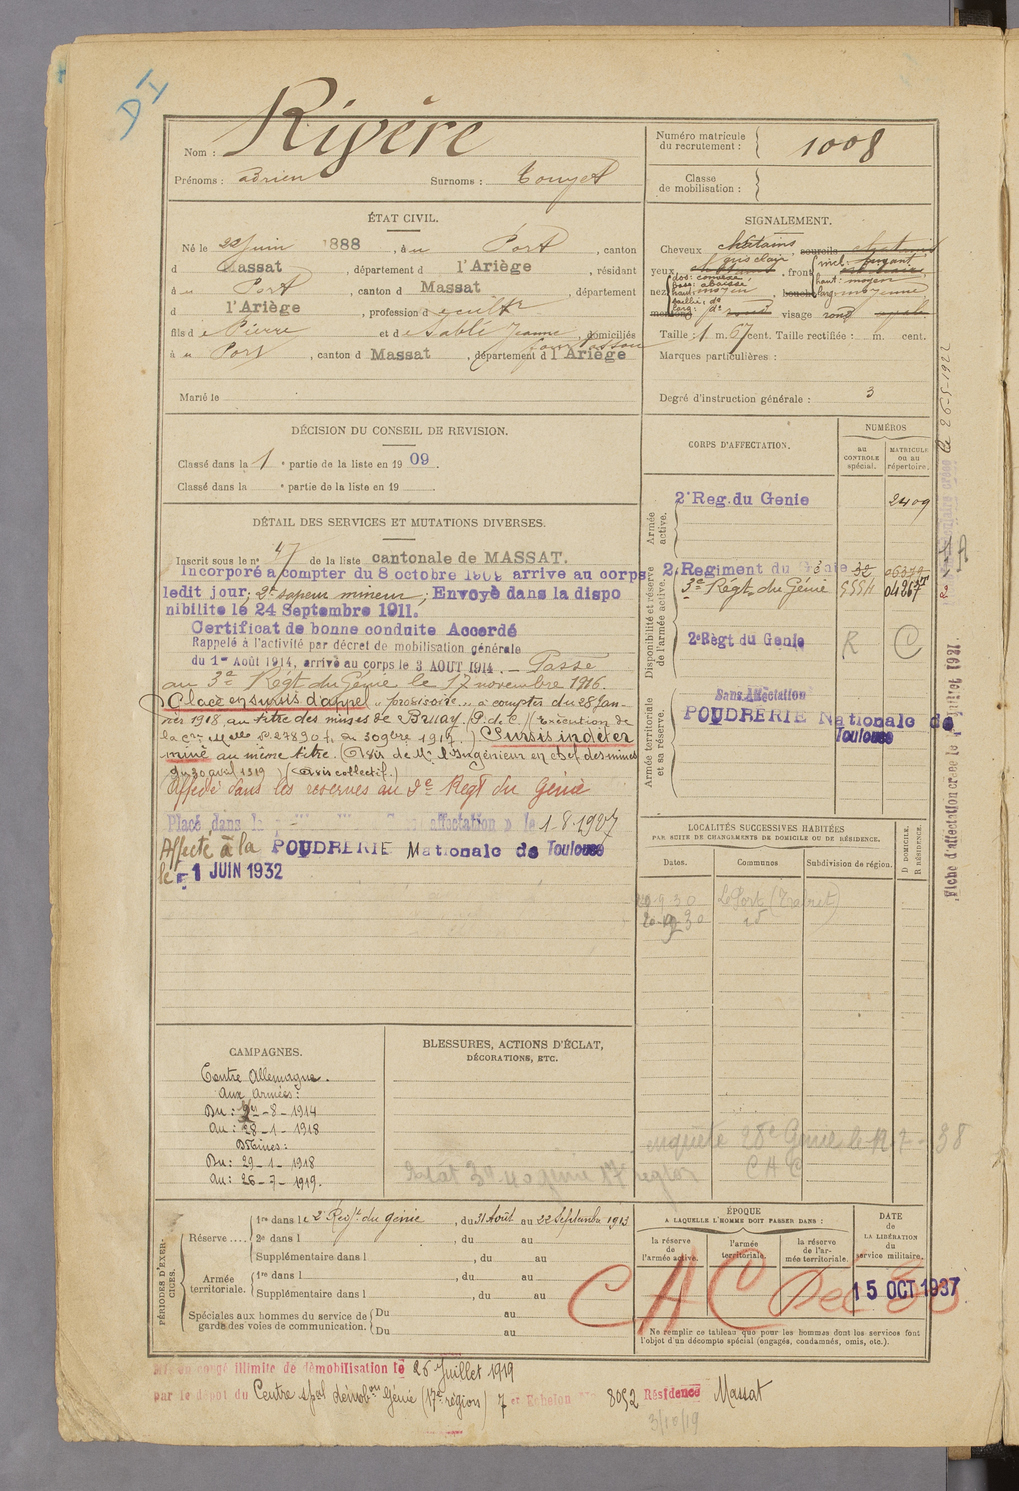 DI
Nom : Rivère
Prénoms : Adrien Surnoms : Touyet
Numéro matricule du recrutement : 1008
Classe de mobilisation :
ÉTAT CIVIL.
Né le 22 juin 1888, à u Port, canton
d Massat, département d l'Ariège, résidant
à u Port, canton d Massat, département
d l'Ariège, profession d cultr
fils d e Pierre et d e Sablé Jeanne, domiciliés
à u Port, canton d Massat, département d l'Ariège
Marié le
SIGNALEMENT.
Cheveux châtains sourcils
yeux gris clair, front incl: fuyant
haut: moyen
nez dos: convexe
base: abaissé
haut: moyen, bouche larg: moyenne
saillie: do
larg: do
menton rond visage rond
Taille : 1 m. 67 cent. Taille rectifiée : m. cent.
Marques particulières :
Degré d'instruction générale : 3
DÉCISION DU CONSEIL DE REVISION.
Classé dans la 1 e partie de la liste en 1909.
Classé dans la e partie de la liste en 19
DÉTAIL DES SERVICES ET MUTATIONS DIVERSES.
Inscrit sous le n° 47 de la liste cantonale de MASSAT.
Incorporé a compter du 8 octobre 1909 arrive au corps
ledit jour; 2e sapeur mineur; Envoyé dans la dispo
nibilite le 24 Septembre 1911.
Certificat de bonne conduite Accordé
Rappelé à l'activité par décret de mobilisation générale
du 1er Août 1914, arrivé au corps le 3 AOUT 1914. — Passé
au 3e Régt du Génie le 17 novembre 1916.
Placé en sursis d'appel "provisoire" à compter du 28 Jan-
vier 1918 au titre des mines de Bruay (P. de C.) (Exécution de
la Cre Melle No 27890 du 30 9bre 1917.) Sursis indéter
miné au même titre. (Avis de Mr l'Ingénieur en chef des mines
du 30 avril 1919) (Avis collectif.)
Affecté dans les réserves au 2e Régt du Génie
Placé dans la affectation le 1-8-1927
Affecté à la POUDRERIE Nationale de Toulouse
le 1 JUIN 1932
CORPS D'AFFECTATION.
NUMÉROS
au CONTROLE spécial.
MATRICULE ou au répertoire.
Armée active.
2e Reg. du Genie 2409
Disponibilité et réserve de l'armée active.
2e Regiment du Génie
3e Régt du Génie 9554 04267
2e Règt du Genie R C
Armée territoriale et sa réserve.
Sans Affectation
POUDRERIE Nationale de
Toulouse
LOCALITÉS SUCCESSIVES HABITÉES
PAR SUITE DE CHANGEMENTS DE DOMICILE OU DE RÉSIDENCE.
Dates. Communes Subdivision de région. D DOMICILE. R RÉSIDENCE.
20 9 30 Le Port
20-9-30 id
CAMPAGNES.
Contre Allemagne.
Aux armées:
Du: -8-1914
Au: 28-1-1918
Mines:
Du: 29-1-1918
Au: 26-7-1919.
BLESSURES, ACTIONS D'ÉCLAT,
DÉCORATIONS, ETC.
enquête 28e Génie le 12-7-38
C A C
PÉRIODES D'EXERCICES.
Réserve....
1re dans le 2e Régt du génie, du 31 Août au 22 Septembre 1913
2e dans l , du au
Supplémentaire dans l , du au
Armée territoriale.
1re dans l , du au
Supplémentaire dans l , du au
Spéciales aux hommes du service de garde des voies de communication.
Du au
Du au
ÉPOQUE
A LAQUELLE L'HOMME DOIT PASSER DANS :
la réserve de l'armée active.
l'armée territoriale.
la réserve de l'armée territoriale.
DATE DE LA LIBÉRATION du service militaire.
CAC
15 OCT 1937
Ne remplir ce tableau que pour les hommes dont les services font
l'objet d'un décompte spécial (engagés, condamnés, omis, etc.).
Mis en congé illimité de démobilisation le 26 Juillet 1919
par le dépôt du Centre spal démobon Génie (17e région) 7 er Echelon No 8052 Résidence Massat
3/10/19
le 26-5-1922
Fiche d'affectation créée le 1 juillet 1931.